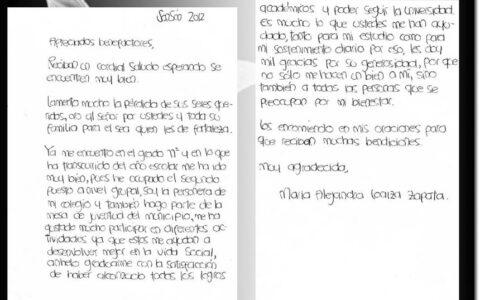 Sonsón 2012
Apreciados benefactores,
Reciban un cordial saludo esperando se
encuentren muy bien.
lamento mucho la pérdida de sus seres que-
ridos, oro al señor por ustedes y toda su
familia para el sea quien les de fortaleza.
Ya me encuentro en el grado 11° y en lo que
ha transcurrido del año escolar me ha ido
muy bien, pues he ocupado el segundo
puesto a nivel grupal, soy la personera de
mi colegio y también hago parte de la
mesa de juventud del municipio, me ha
gustado mucho participar en diferentes ac-
tividades ya que estas me ayudan a
desenvolver mejor en la vida social,
anhelo graduarme con la satisfacción
de haber alcanzado todos los logros
académicos y poder seguir la universidad.
es mucho lo que ustedes me han ayu-
dado, tanto para mi estudio como para
mi sostenimiento diario por eso, les doy
mil gracias por su generosidad, por que
no sólo me hacen un bien a mi, sino
también a todas las personas que se
preocupan por mi bienestar.
los encomiendo en mis oraciones para
que reciban muchas bendiciones.
muy agradecida,
Maria Alejandra Loaiza Zapata.